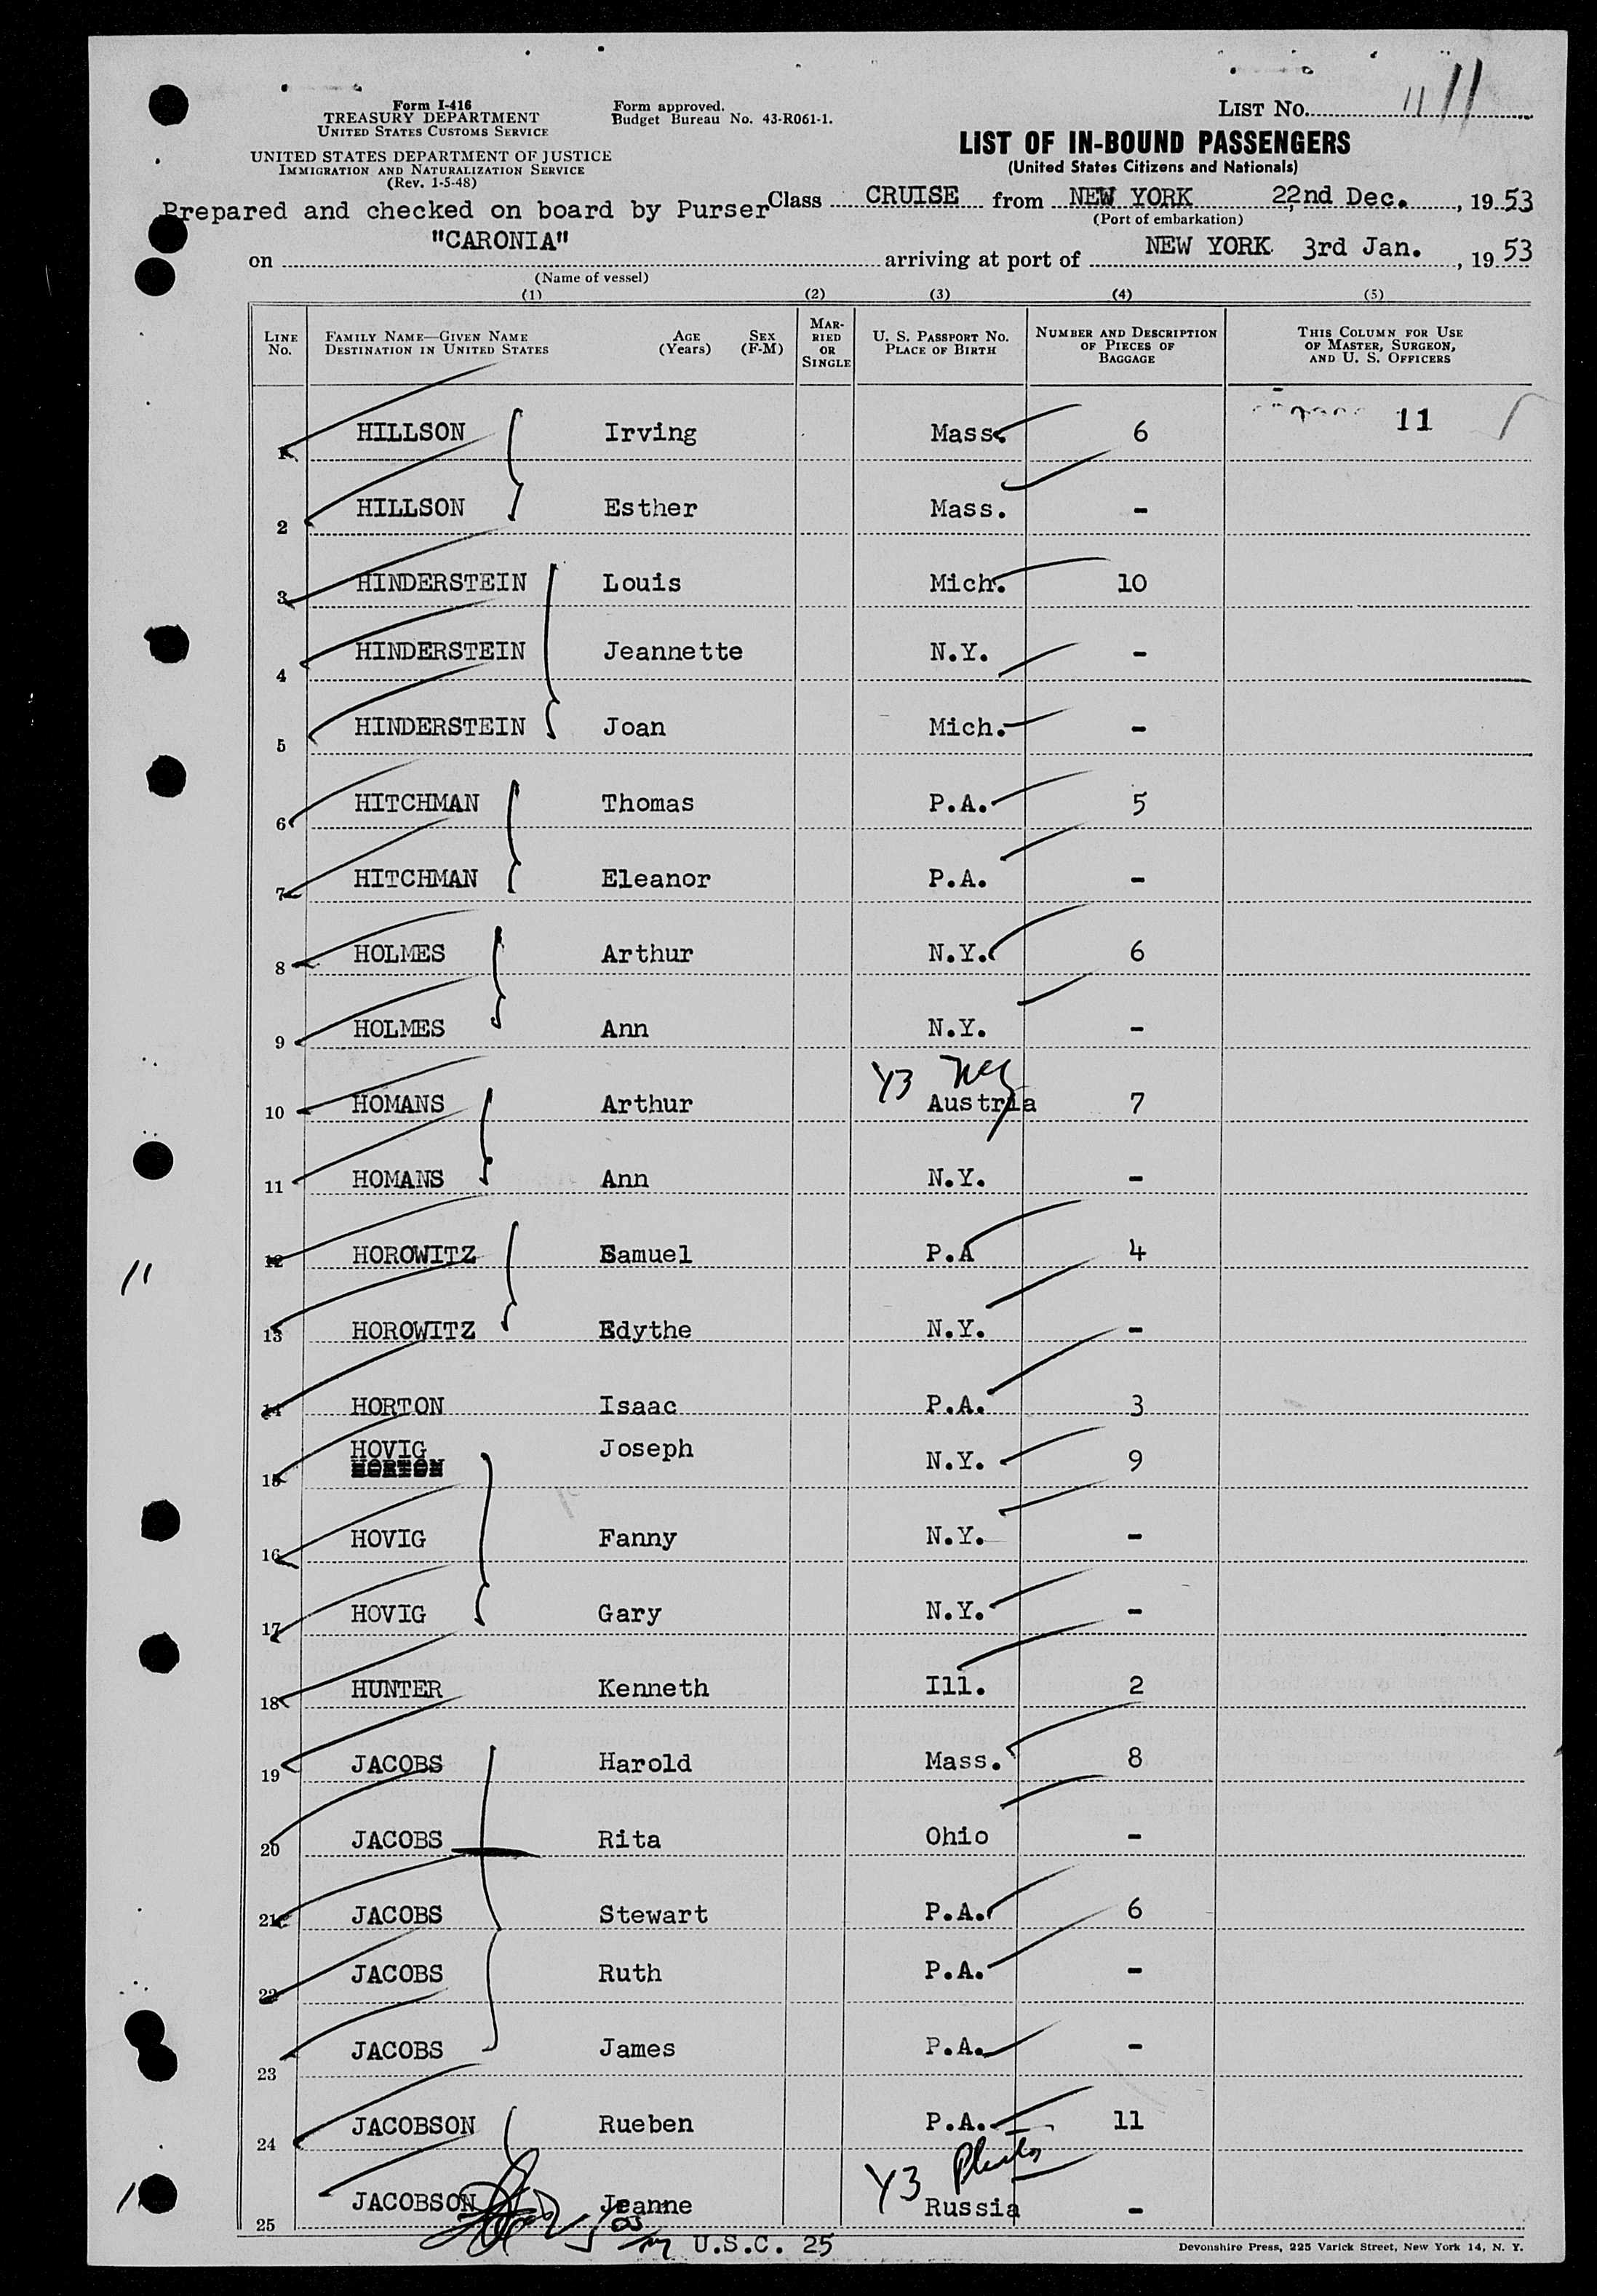 LIST No. 11 11
Form I-416
TREASURY DEPARTMENT
UNITED STATES CUSTOMS SERVICE
Form approved.
Budget Bureau No. 43-R061-1.
UNITED STATES DEPARTMENT OF JUSTICE
IMMIGRATION AND NATURALIZATION SERVICE
(Rev. 1-5-48)
LIST OF IN-BOUND PASSENGERS
(United States Citizens and Nationals)
Prepared and checked on board by Purser Class CRUISE from NEW YORK 22nd Dec., 1953
(Port of embarkation)
on "CARONIA" arriving at port of NEW YORK 3rd Jan., 1953
(Name of vessel)
(1) (2) (3) (4) (5)
LINE No. FAMILY NAME—GIVEN NAME DESTINATION IN UNITED STATES AGE (Years) SEX (F-M) MARRIED OR SINGLE U. S. PASSPORT NO. PLACE OF BIRTH NUMBER AND DESCRIPTION OF PIECES OF BAGGAGE THIS COLUMN FOR USE OF MASTER, SURGEON, AND U. S. OFFICERS
1 HILLSON Irving Mass. 6 11
2 HILLSON Esther Mass. -
3 HINDERSTEIN Louis Mich. 10
4 HINDERSTEIN Jeannette N.Y. -
5 HINDERSTEIN Joan Mich. -
6 HITCHMAN Thomas P.A. 5
7 HITCHMAN Eleanor P.A. -
8 HOLMES Arthur N.Y. 6
9 HOLMES Ann N.Y. -
Y3
10 HOMANS Arthur Austria 7
11 HOMANS Ann N.Y. -
12 HOROWITZ Samuel P.A 4
13 HOROWITZ Edythe N.Y. -
14 HORTON Isaac P.A. 3
15 HOVIG Joseph N.Y. 9
HORTON
16 HOVIG Fanny N.Y. -
17 HOVIG Gary N.Y. -
18 HUNTER Kenneth Ill. 2
19 JACOBS Harold Mass. 8
20 JACOBS Rita Ohio -
21 JACOBS Stewart P.A. 6
22 JACOBS Ruth P.A. -
23 JACOBS James P.A. -
24 JACOBSON Rueben P.A. 11
Y3
25 JACOBSON Jeanne Russia -
U.S.C. 25
Devonshire Press, 225 Varick Street, New York 14, N. Y.
11